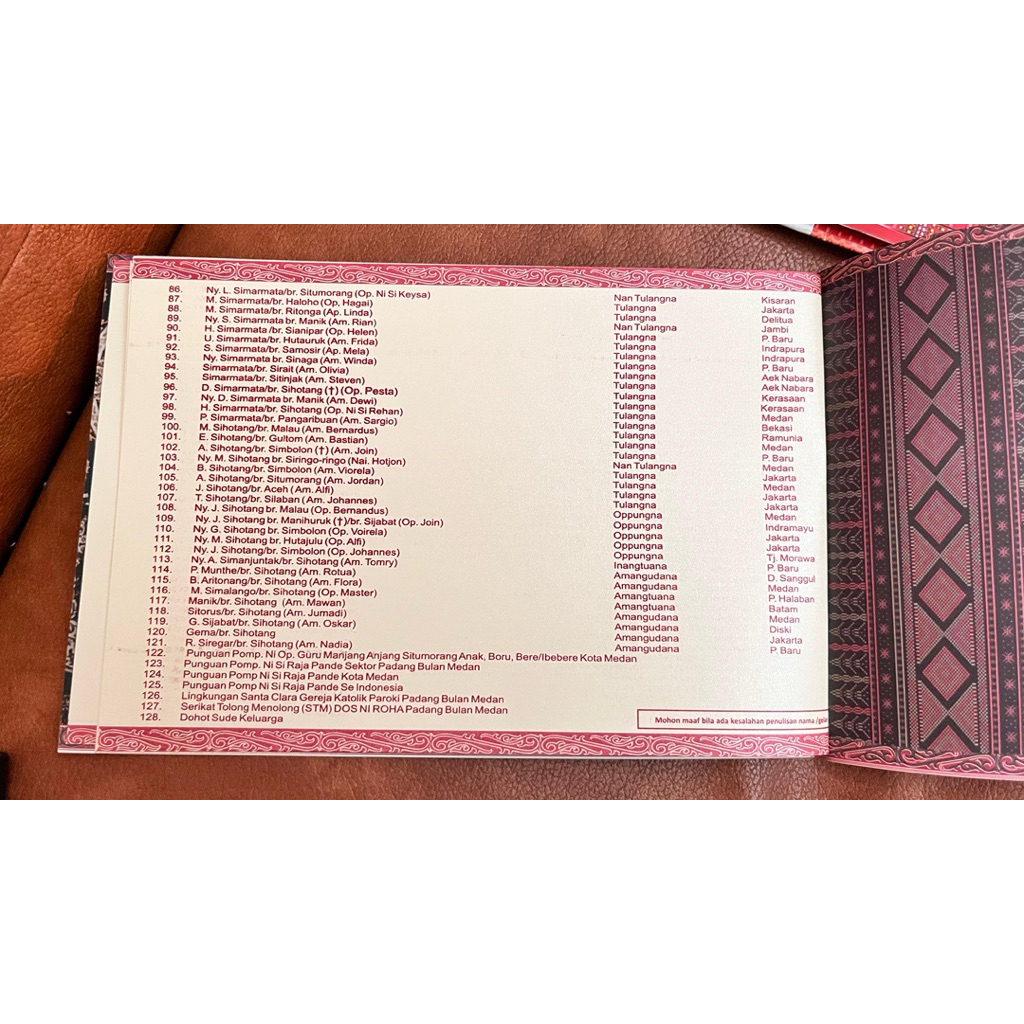 86. Ny. L. Simarmata/br. Situmorang (Op. Ni Si Keysa) Nan Tulangna Kisaran
87. M. Simarmata/br. Haloho (Op, Hagai) Tulangna Jakarta
88. M. Simarmata/br. Ritonga (Ap. Linda) Tulangna Delitua
89. Ny. S. Simarmata br. Manik (Am. Rian) Nan Tulangna Jambi
90. H. Simarmata/br. Sianipar (Op. Helen) Tulangna P. Baru
91. U. Simarmata/br. Hutauruk (Am. Frida) Tulangna Indrapura
92. S. Simarmata/br. Samosir (Ap. Mela) Tulangna Indrapura
93. Ny. Simarmata br. Sinaga (Am. Winda) Tulangna P. Baru
94. Simarmata/br. Sirait (Am. Olivia) Tulangna Aek Nabara
95. Simarmata/br. Sitinjak (Am. Steven) Tulangna Aek Nabara
96. D. Simarmata/br. Sihotang (†) (Op. Pesta) Tulangna Kerasaan
97. Ny. D. Simarmata br. Manik (Am. Dewi) Tulangna Kerasaan
98. H. Simarmata/br. Sihotang (Op. Ni Si Rehan) Tulangna Medan
99. P. Simarmata/br. Pangaribuan (Am. Sargio) Tulangna Bekasi
100. M. Sihotang/br. Malau (Am. Bernardus) Tulangna Ramunia
101. E. Sihotang/br. Gultom (Am. Bastian) Tulangna Medan
102. A. Sihotang/br. Simbolon (†) (Am. Join) Tulangna P. Baru
103. Ny. M. Sihotang br. Siringo-ringo (Nai. Hotjon) Nan Tulangna Medan
104. B. Sihotang/br. Simbolon (Am. Viorela) Tulangna Jakarta
105. A. Sihotang/br. Situmorang (Am. Jordan) Tulangna Medan
106. J. Sihotang/br. Aceh (Am. Alfi) Tulangna Jakarta
107. T. Sihotang/br. Silaban (Am. Johannes) Tulangna Jakarta
108. Ny. J. Sihotang br. Malau (Op. Bernandus) Oppungna Medan
109. Ny. J. Sihotang br. Manihuruk (†)/br. Sijabat (Op. Join) Oppungna Indramayu
110. Ny. G. Sihotang br. Simbolon (Op. Voirela) Oppungna Jakarta
111. Ny. M. Sihotang br. Hutajulu (Op. Alfi) Oppungna Jakarta
112. Ny. J. Sihotang/br. Simbolon (Op. Johannes) Oppungna Tj. Morawa
113. Ny. A. Simanjuntak/br. Sihotang (Am. Tomry) Inangtuana P. Baru
114. P. Munthe/br. Sihotang (Am. Rotua) Amangudana D. Sanggul
115. B. Aritonang/br. Sihotang (Am. Flora) Amangudana Medan
116. M. Simalango/br. Sihotang (Op. Master) Amangtuana P. Halaban
117. Manik/br. Sihotang (Am. Mawan) Amangtuana Batam
118. Sitorus/br. Sihotang (Am. Jumadi) Amangudana Medan
119. G. Sijabat/br. Sihotang (Am. Oskar) Amangudana Diski
120. Gema/br. Sihotang Amangudana Jakarta
121. R. Siregar/br. Sihotang (Am. Nadia) Amangudana P. Baru
122. Punguan Pomp. Ni Op. Guru Manjang Anjang Situmorang Anak, Boru, Bere/Ibebere Kota Medan
123. Punguan Pomp. Ni Si Raja Pande Sektor Padang Bulan Medan
124. Punguan Pomp Ni Si Raja Pande Kota Medan
125. Punguan Pomp Ni Si Raja Pande Se Indonesia
126. Lingkungan Santa Clara Gereja Katolik Paroki Padang Bulan Medan
127. Serikat Tolong Menolong (STM) DOS NI ROHA Padang Bulan Medan
128. Dohot Sude Keluarga
Mohon maaf bila ada kesalahan penulisan nama